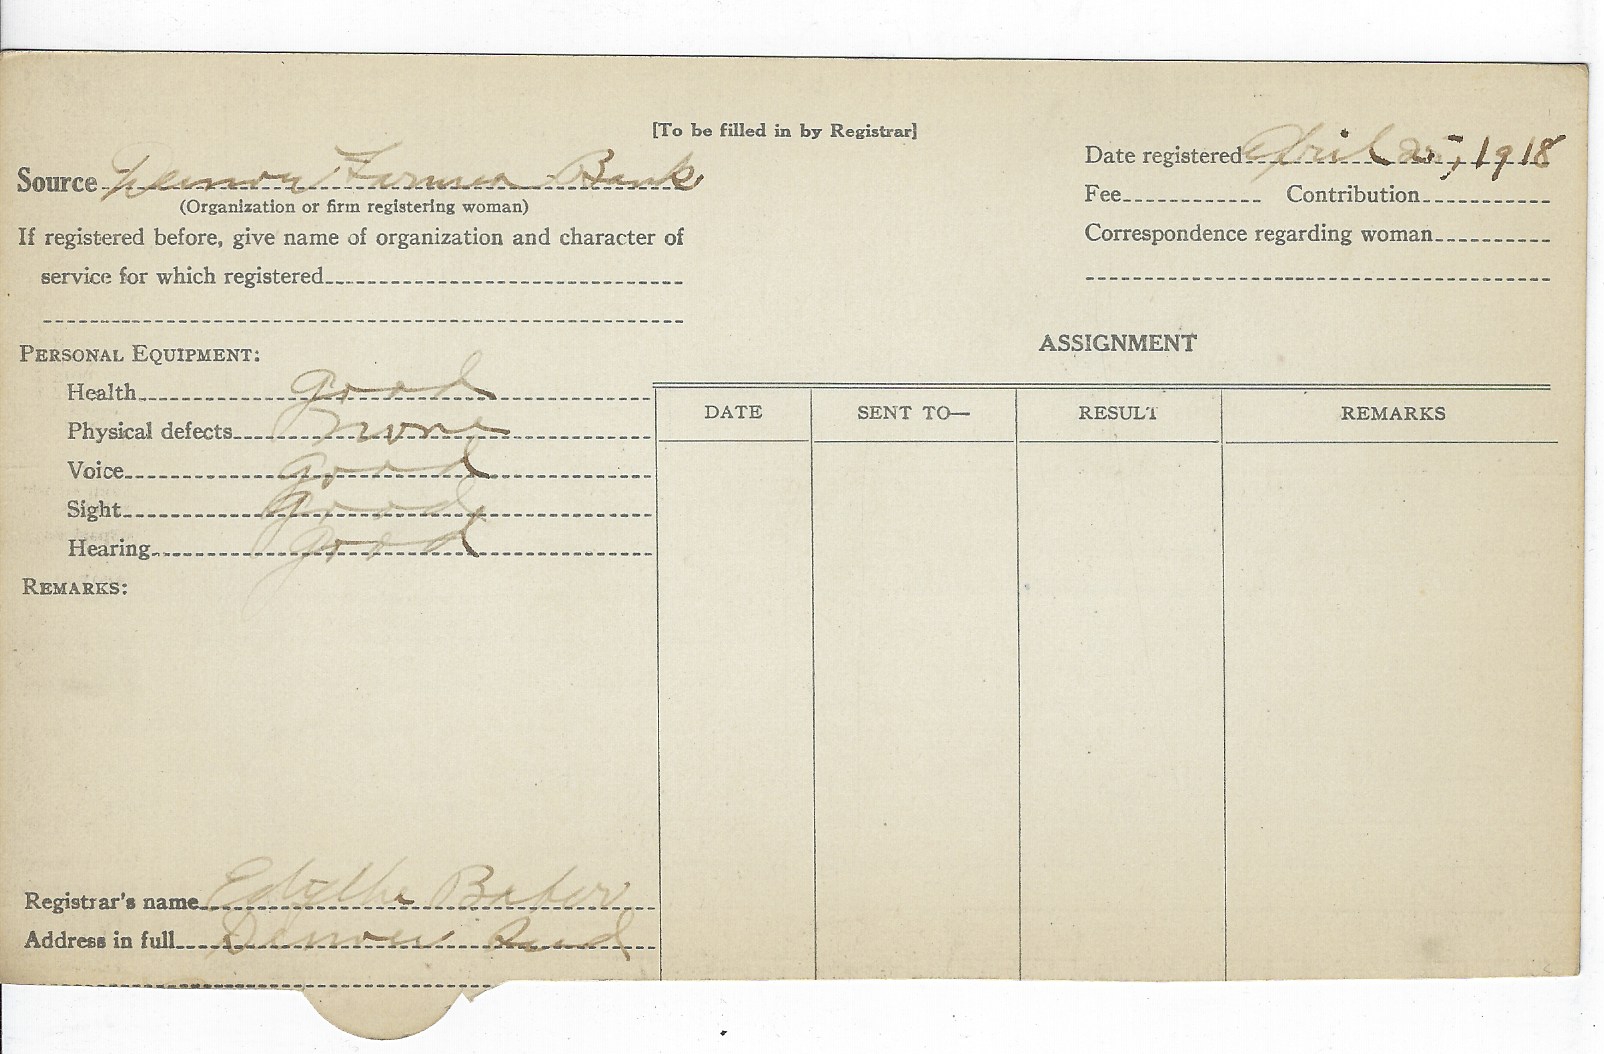 [To be filled in by Registrar]
Source Denver Farmer Bank
(Organization or firm registering woman)
If registered before, give name of organization and character of
service for which registered
Date registered April 25, 1918
Fee Contribution
Correspondence regarding woman
PERSONAL EQUIPMENT:
Health good
Physical defects None
Voice good
Sight good
Hearing good
REMARKS:
ASSIGNMENT
DATE SENT TO— RESULT REMARKS
Registrar's name Edithe Baber
Address in full Denver Ind